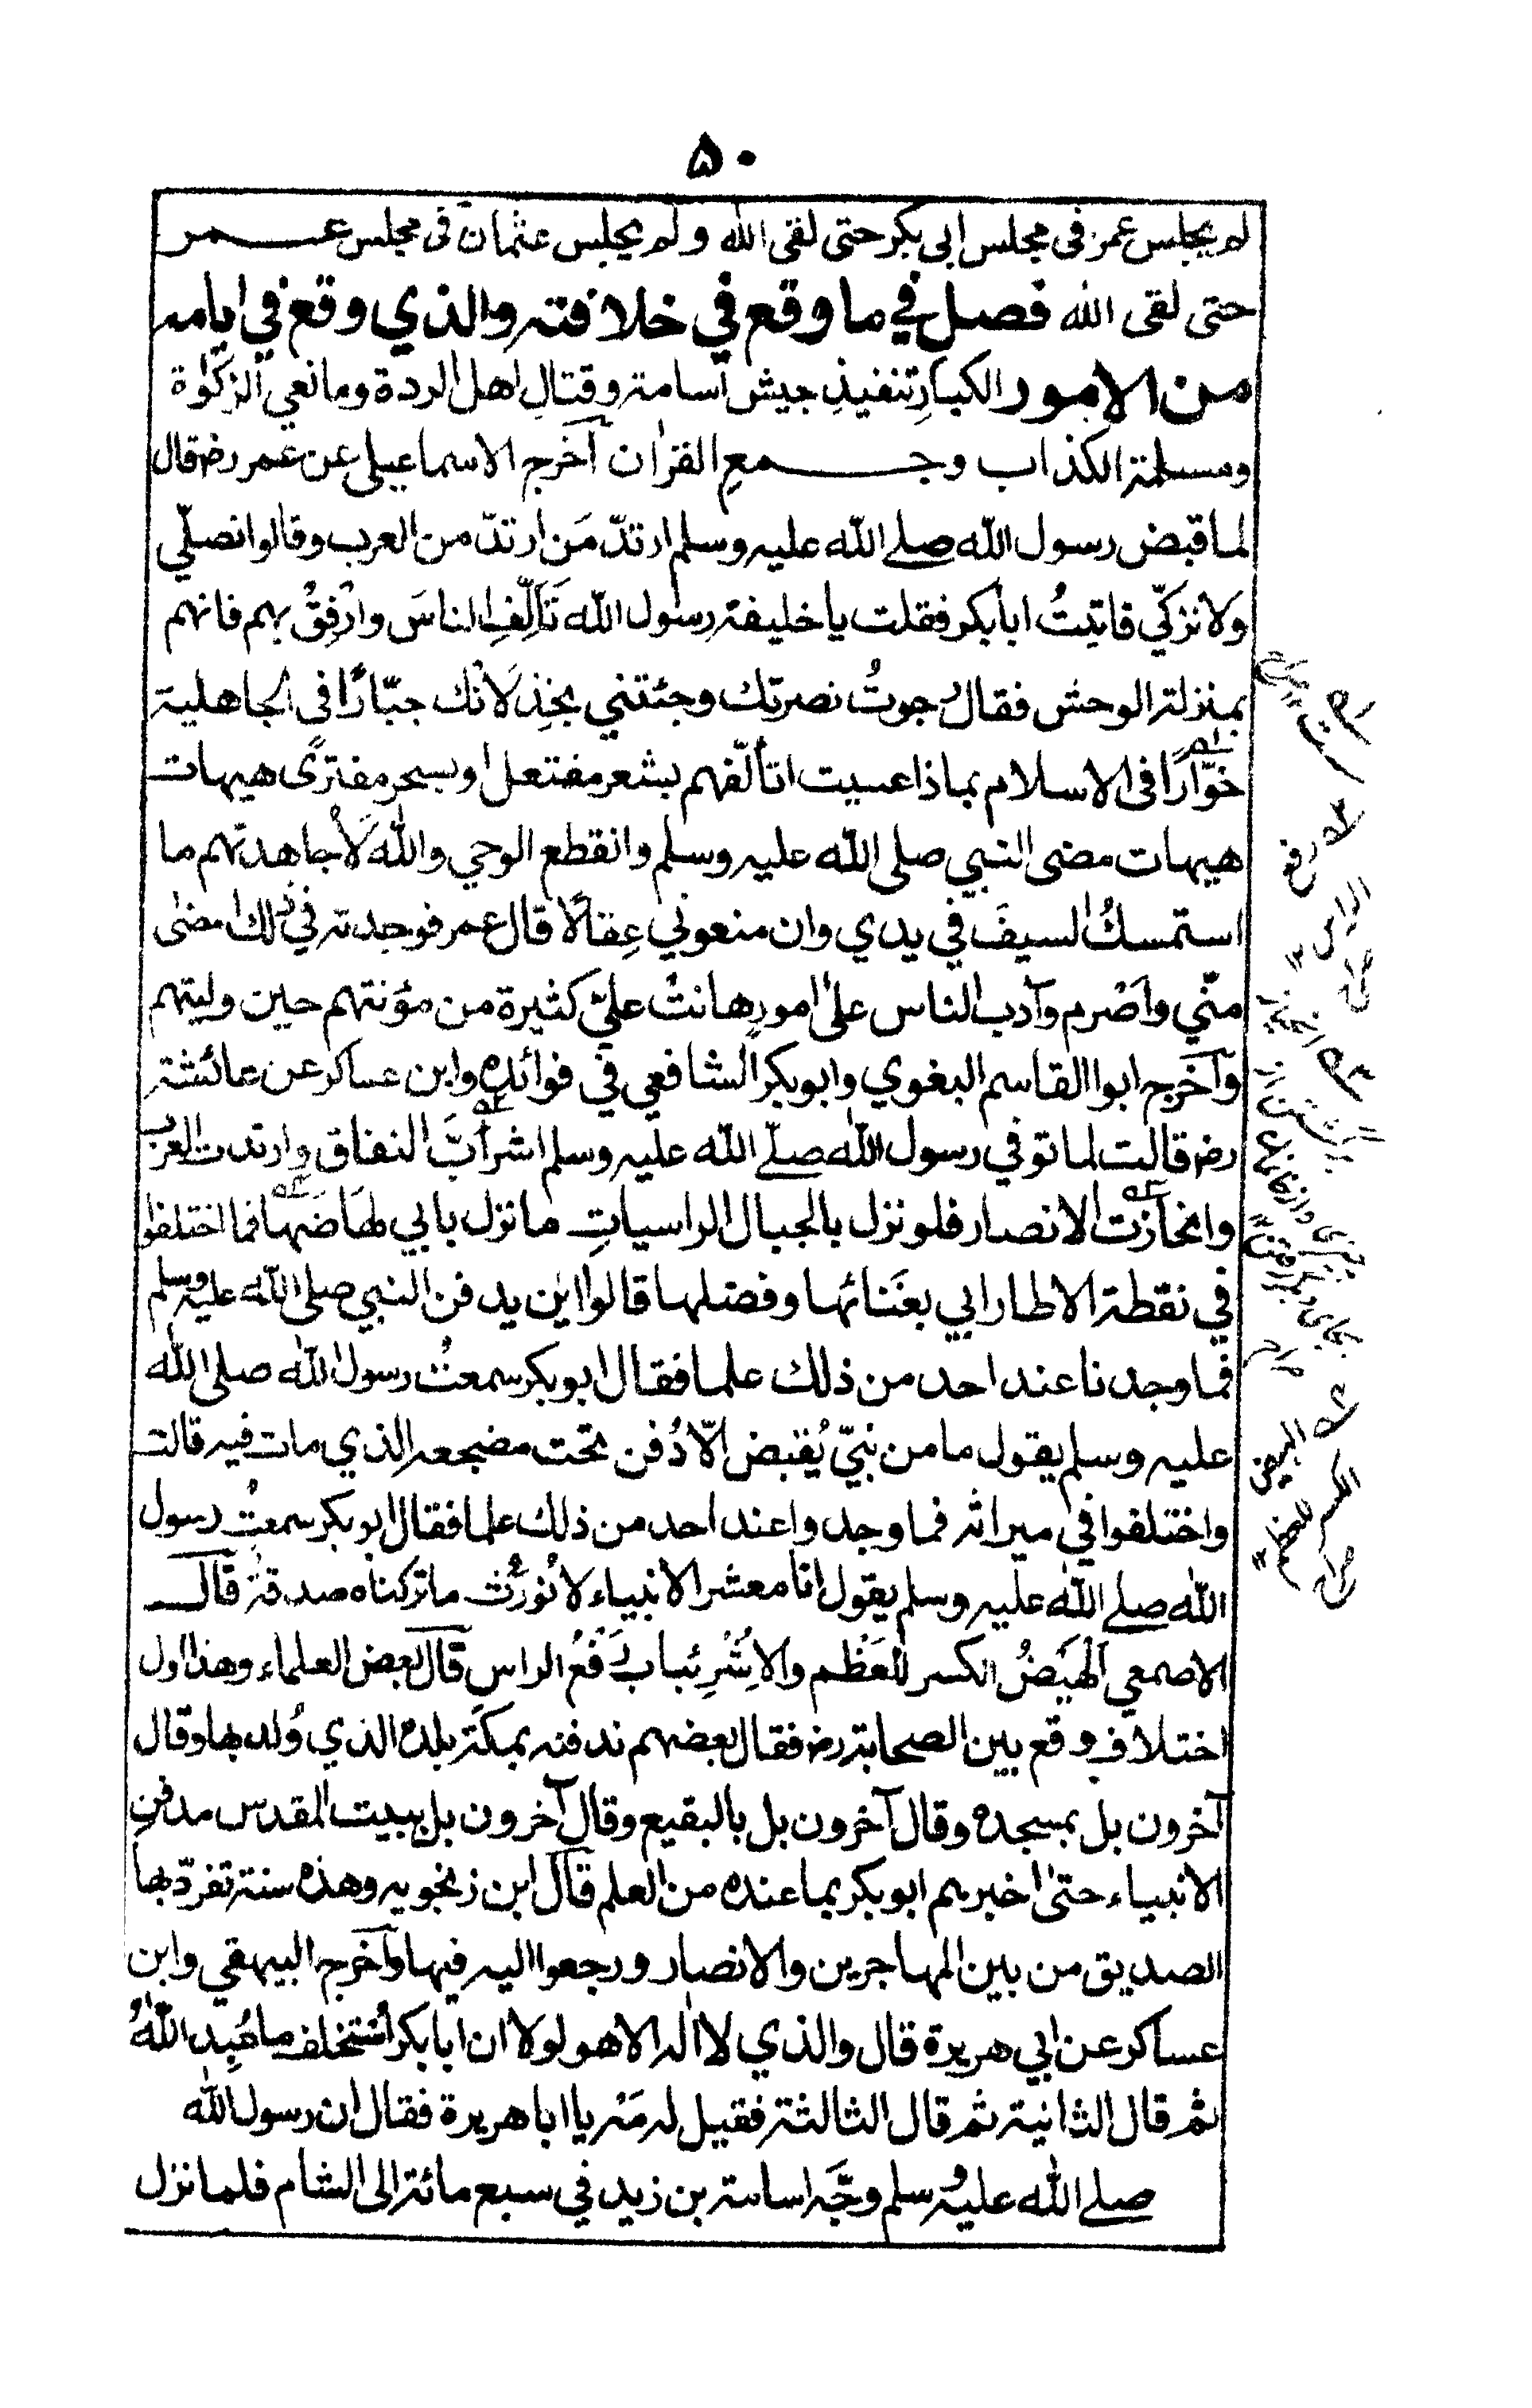 ۵۰
لم يجلس عمر في مجلس ابي بكر حتى لقى الله ولم يجلس عثمان في مجلس عمر
حتى لقى الله فصل في ما وقع في خلافته والذي وقع في ايامه
من الامور الكبار تنفيذ جيش اسامة وقتال اهل الردة ومانعي الزكوٰة
ومسيلمة الكذاب وجمع القرٰان آخرج الاسماعيلي عن عمر رض قال
لما قبض رسول الله صلى الله عليه وسلم ارتدّ مَن ارتدّ من العرب وقالوا نصلّي
ولا نزكّي فاتيتُ ابا بكر فقلت يا خليفة رسول الله تَأَلَّفِ الناسَ وارْفِقْ بهم فانهم
بمنزلة الوحش فقال رجوتُ نصرتك وجئتني بخِذلانك جبّارًا في الجاهلية
خوّارًا في الاسلام بماذا عسيت اتألّفهم بشعر مفتعل او بسحر مفترًى هيهات
هيهات مضى النبي صلى الله عليه وسلم وانقطع الوحي والله لَأُجاهدنّهم ما
استمسك السيفَ في يدي وان منعوني عِقالًا قال عمر فوجدته في ذلك امضىٰ
منّي واَصْرم وآدب الناس علىٰ امورٍ هانتْ عليّ كثيرة من مؤنتهم حين وليتهم
وآخرج ابوا القاسم البغوي وابوبكر الشافعي في فوائده وابن عساكر عن عائشة
رض قالت لما توفي رسول الله صلّى الله عليه وسلم اشرأبّ النفاق وارتدت العرب
وانحازت الانصار فلو نزل بالجبال الراسياتِ ما نزل بابي لهَاضَها فما اختلفوا
في نقطة الا طار ابي بغَنَائها وفضلها قالوا اين يدفن النبي صلى الله عليه وسلم
فما وجدنا عند احد من ذلك علما فقال ابو بكر سمعتُ رسول الله صلى الله
عليه وسلم يقول ما من نبيّ يُقبض الّا دُفن تحت مضجعه الذي مات فيه قالت
واختلفوا في ميراثه فما وجدوا عند احد من ذلك علما فقال ابو بكر سمعتُ رسول
الله صلى الله عليه وسلم يقول انا معشر الانبياء لا نُورَّث ما تركناه صدقة قال
الاصمعي الهَيضُ الكسر للعَظْم والاِشْرِئباب رَفْعُ الراس قال بعض العلماء وهذا اول
اختلاف وقع بين الصحابة رض فقال بعضهم ندفنه بمكة بلده الذي وُلد بها وقال
آخرون بل بمسجده وقال آخرون بل بالبقيع وقال آخرون بل ببيت المقدس مدفن
الانبياء حتىٰ اخبرهم ابو بكر بما عنده من العلم قال ابن زنجويه وهذه سنة تفرّد بها
الصديق من بين المهاجرين والانصار ورجعوا اليه فيها وآخرج البيهقي وابن
عساكر عن ابي هريرة قال والذي لا الٰه الا هو لولا ان ابا بكر اُستخلف ما عُبِد اللهُ
ثم قال الثانية ثم قال الثالثة فقيل له مَه يا ابا هريرة فقال ان رسول الله
صلى الله عليه وسلم وجَّه اسامة بن زيد في سبع مائة الى الشام فلما نزل